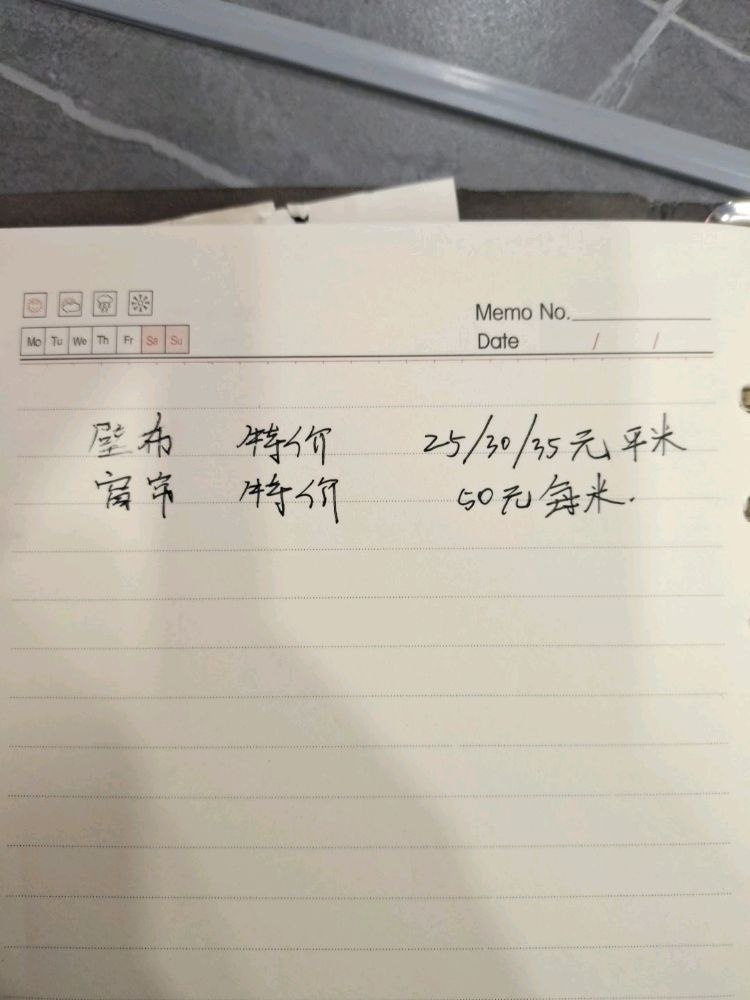 Memo No.
Mo Tu We Th Fr Sa Su
Date / /
壁布 特价 25/30/35元平米
窗帘 特价 50元每米.